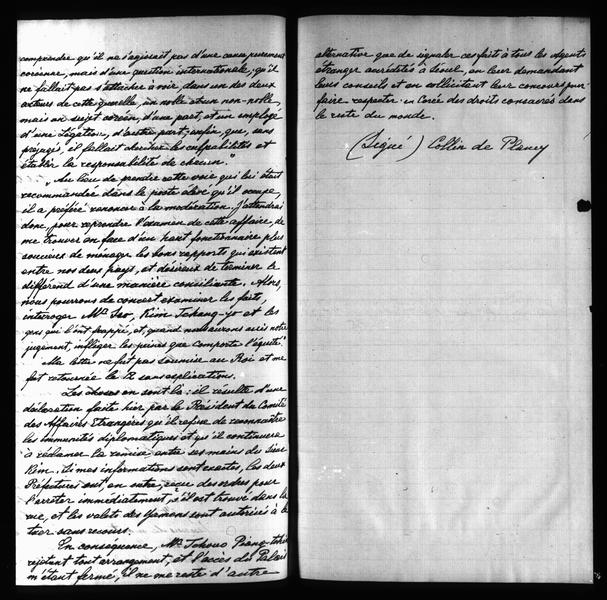 comprendre qu'il ne s'agissait pas d'une cause purement
coréenne, mais d'une question internationale, qu'il
ne fallait pas s'attacher à voir, dans un des deux
acteurs de cette querelle, un noble et un non-noble,
mais un sujet coréen, d'une part, et un employé
d'une Légation, d'autre part; enfin, que, sans
préjugés il fallait chercher les culpabilités et
établir la responsabilité de chacun."
"Au lieu de prendre cette voie qui lui était
recommandée dans le poste élevé qu'il occupe,
il a préféré renoncer à la médiation. J'attendrai
donc, pour reprendre l'examen de cette affaire, de
me trouver en face d'un haut fonctionnaire plus
soucieux de ménager les bons rapports qui existent
entre nos deux pays, et désireux de terminer le
différend d'une manière conciliante. Alors,
nous pourrons de concert examiner les faits,
interroger Mr. Seo, Kim Tchang-yo et les
gens qui l'ont frappé, et, quand nous aurons assis notre
jugement, infliger les peines que comporte l'équité."
Ma lettre ne fut pas soumise au Roi et me
fut retournée le 12 sans explications.
Les choses en sont là: il résulte d'une
déclaration faite hier par le Président du Comité
des Affaires Etrangères qu'il refuse de reconnaître
les immunités diplomatiques et qu'il continuera
à réclamer la remise entre ses mains du sieur
Kim. Si mes informations sont exactes, les deux
Préfectures ont, en outre, reçu des ordres pour
l'arrêter immédiatement, s'il est trouvé dans la
rue, et les valets des Yamens sont autorisés à le
tuer sans recours.
En conséquence, Mr. Tchouo Piang-
rejetant tout arrangement, et l'accès du Palais
m'étant fermé, il ne me reste d'autre
alternative que de signaler ces faits à tous les Agents
étrangers accrédités à Séoul, en leur demandant
leurs conseils et en sollicitant leur concours pour
faire respecter en Corée des droits consacrés dans
le reste du monde.
(Signé) Collin de Plancy